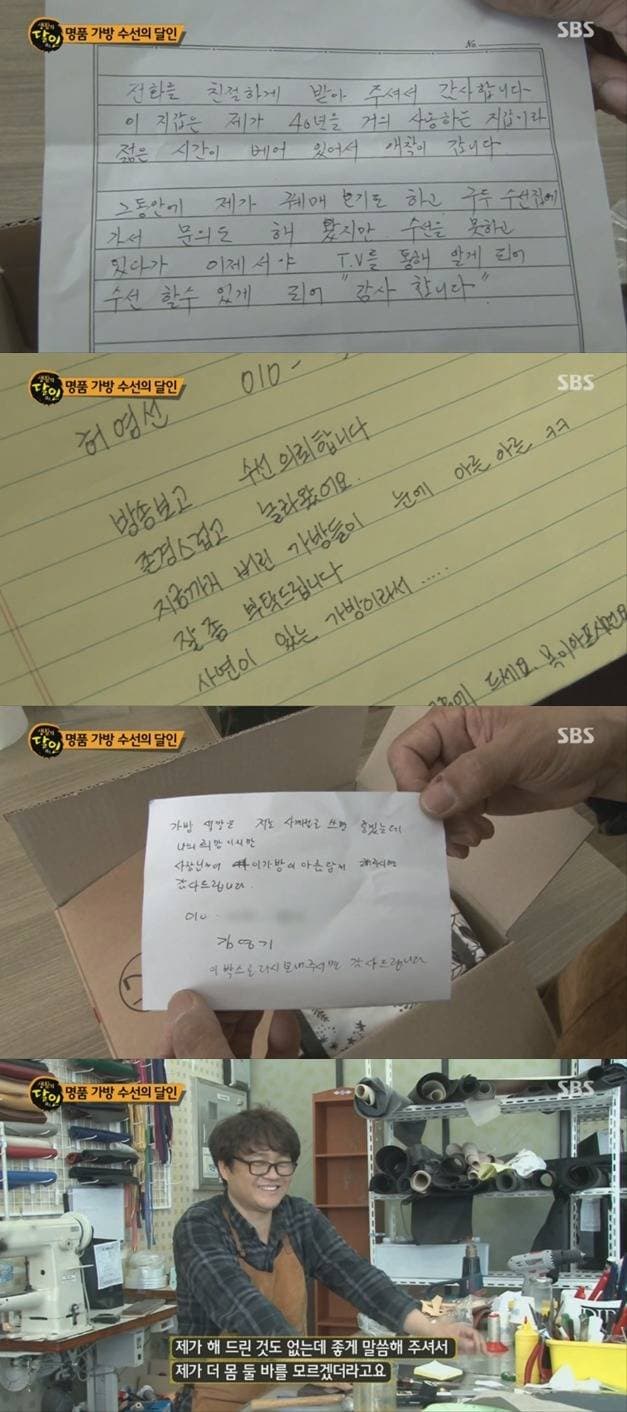 생활의 달인 명품 가방 수선의 달인
SBS
No.
전화를 친절하게 받아 주셔서 감사합니다
이 지갑은 제가 40년을 거의 사용하는 지갑이라
젊은 시간이 베어 있어서 애착이 갑니다
그동안에 제가 꿰매 보기도 하고 구두 수선집에
가서 문의도 해 봤지만 수선을 못하고
있다가 이제서야 T.V를 통해 알게 되어
수선 할수 있게 되어 "감사 합니다"
생활의 달인 명품 가방 수선의 달인
SBS
허영선 010-
방송보고 수선의뢰합니다
존경스럽고 놀라왔어요
지금까지 버린 가방들이 눈에 아른 아른 ㅋㅋ
잘 좀 부탁드립니다
사연이 있는 가방이라서 .....
드세요
생활의 달인 명품 가방 수선의 달인
SBS
가방 색깔은 저도 사계절로 쓰면 좋겠는데
나의 희망이지만
이가방에
감사드립니다
010
김영기
이 박스로 다시 보내주시면 감사드립니다
생활의 달인 명품 가방 수선의 달인
SBS
제가 해 드린 것도 없는데 좋게 말씀해 주셔서
제가 더 몸 둘 바를 모르겠더라고요